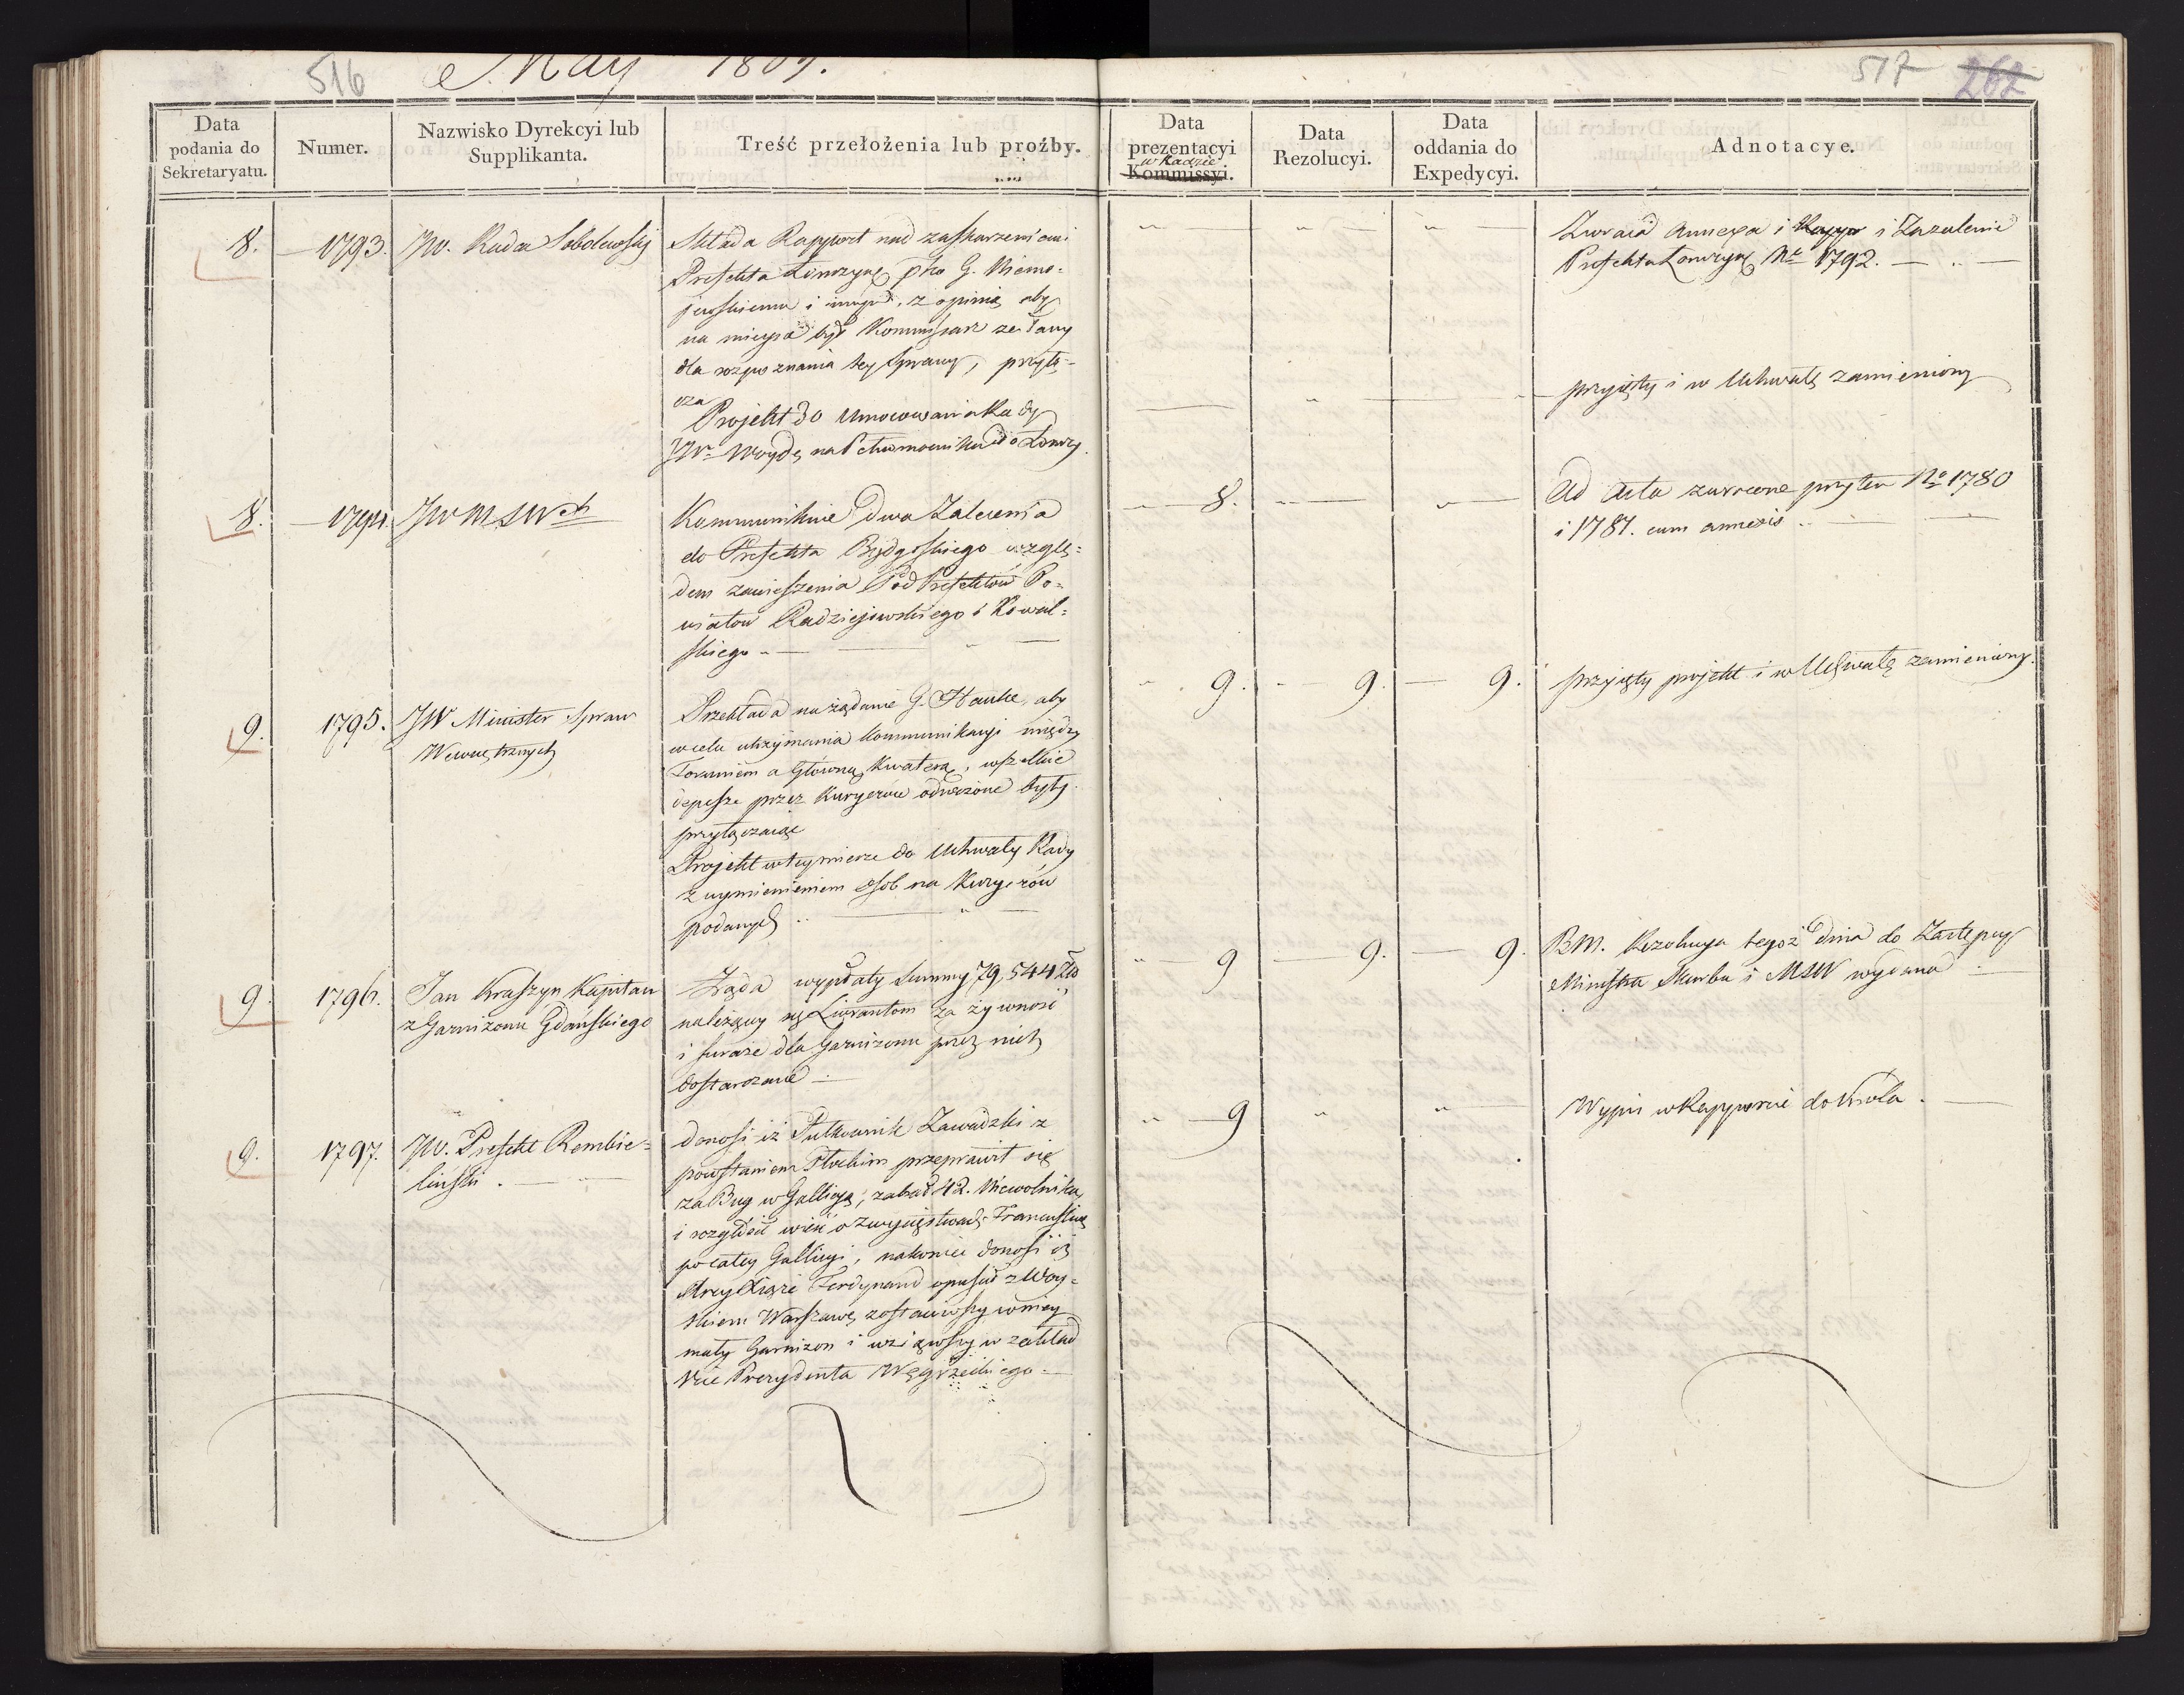 516
May 1809.
517 262
Data podania do Sekretaryatu.
Numer.
Nazwisko Dyrekcyi lub Supplikanta.
Treść przełożenia lub proźby.
Data prezentacyi w Radzie Kommissyi.
Data Rezolucyi.
Data oddania do Expedycyi.
Adnotacye.
8. 1793. JW. Radca Sobolewski
Składa Rapport nad zaskarzeniami
Prefekta Łomżyn. pko G. Niemo-
jewskiemu i z opinią aby
na mieysce był Kommissarz zesłany
dla rozpoznania tey sprawy, przyłą-
cza
Projekt do Umocowania Rady
JW. Woydę na Pełnomocnika do Łomży.
Zwraca Annexa i Rappor i Zażalenie
Prefekta Łomżyń. No 1792.
przyięty i w Uchwałę zamieniony
8. 1794. JW MSWch
Kommunikuie dwa Zalecenia
do Prefekta Bydgoskiego wzglę-
dem zawieszenia PodPrefektów Po-
wiatow Radziejowskiego i Kowal-
skiego
8.
Ad Acta zwrocone przy tem No 1780
i 1781. cum annexis
9. 1795. JW Minister Spraw
Wewnętrznych
Przekłada na żądanie G. Hauke, aby
w celu utrzymania kommunikacyi między
Toruniem a Główną Kwaterą, wszelkie
depesze przez Kuryerow odwożone były
przyłączaiąc
Projekt w tey mierze do Uchwały Rady
z wymienieniem osob na Kuryerów
podanych
9. 9. 9.
przyięty projekt i w Uchwałę zamieniony.
9. 1796. Jan Kraszyn Kapitan
z Garnizonu Gdańskiego
Żąda wypłaty Summy 79,544 Zło
należącey się Liwrantom za żywność
i furaże dla Garnizonu przez nich
dostarczane
9 9. 9.
RM. Rezolucya tegoż dnia do Zastępcy
Ministra Skarbu i MSW wydana
9. 1797. JW. Prefekt Rembie-
liński.
donosi iż Pułkownik Zawadzki z
powstaniem Płockim przeprawił się
za Bug w Gallicyą, zabrał 42. Niewolnika,
i rozgłosił wieść o zwycięstwach Francuskich
po całey Gallicyi, nakoniec donosi iż
Arcy Xiąże Ferdynand opuścił z Woy-
skiem Warszawę zostawiwszy w niey
mały Garnizon i wziąwszy w zakład
Vice Prezydenta Węgrzeckiego
9
Wypis w Rapporcie do Króla.